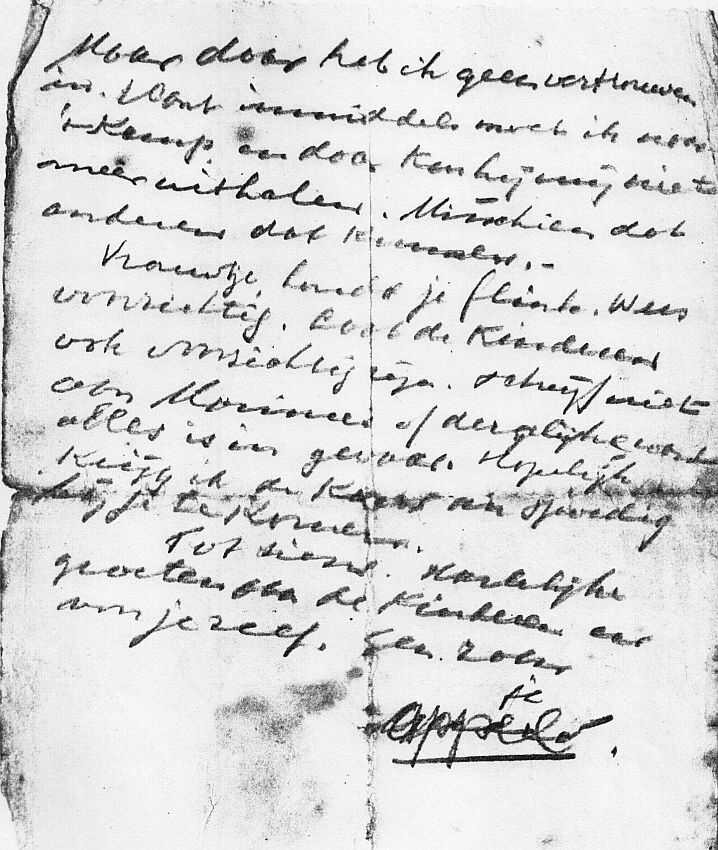 Maar daar heb ik geen vertrouwen
in. Want inmiddels moet ik naar
'n Kamp. en daar kan hij mij niet
meer uithalen. Misschien dat
anderen dat kunnen.-
Vrouwtje, houdt je flink. Wees
voorzichtig. Laat de Kinderen
ook voorzichtig zijn. Schrijf niet
aan of dergelijke want
alles is in gevaar. Hopelijk
krijg ik de Kans om spoedig
bij je te Komen.
Tot ziens. Hartelijke
groeten aan de Kinderen en
van jezelf. Een zoen
je